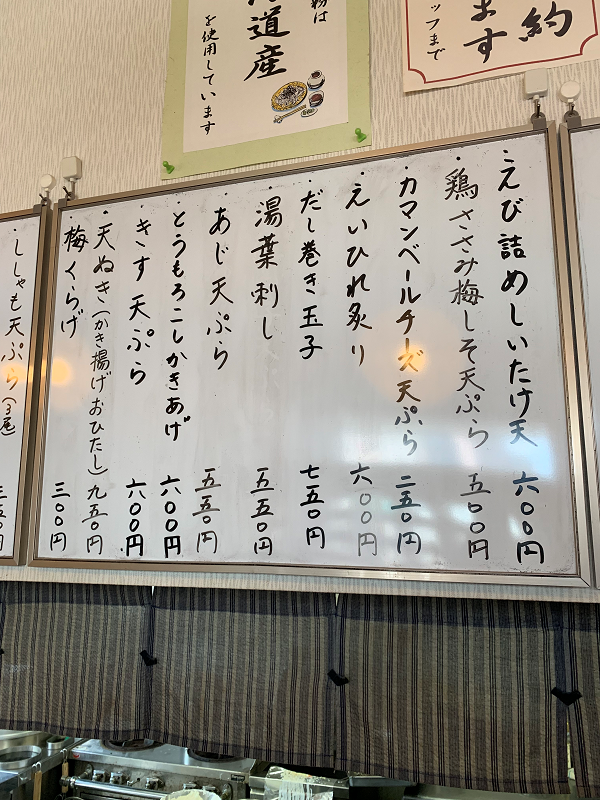 粉は
海道産
を使用しています
約
ます
ッフまで
・えび詰めしいたけ天 六〇〇円
・鶏ささみ梅しそ天ぷら 五〇〇円
・カマンベールチーズ天ぷら 二五〇円
・えいひれ炙り 六〇〇円
・だし巻き玉子 七五〇円
・湯葉刺し 五五〇円
・あじ天ぷら 五五〇円
・とうもろこしかきあげ 六〇〇円
・きす天ぷら 六〇〇円
・天ぬき(かき揚げおひたし) 九五〇円
・梅くらげ 三〇〇円
・ししゃも天ぷら(3尾) 三五〇円